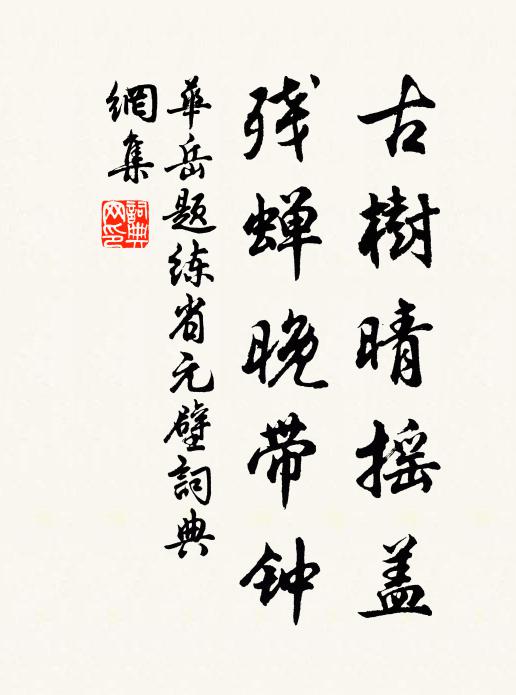 古樹晴摇盖
残蝉晚带钟
華岳题练省元壁詞典
網集
詞典網印